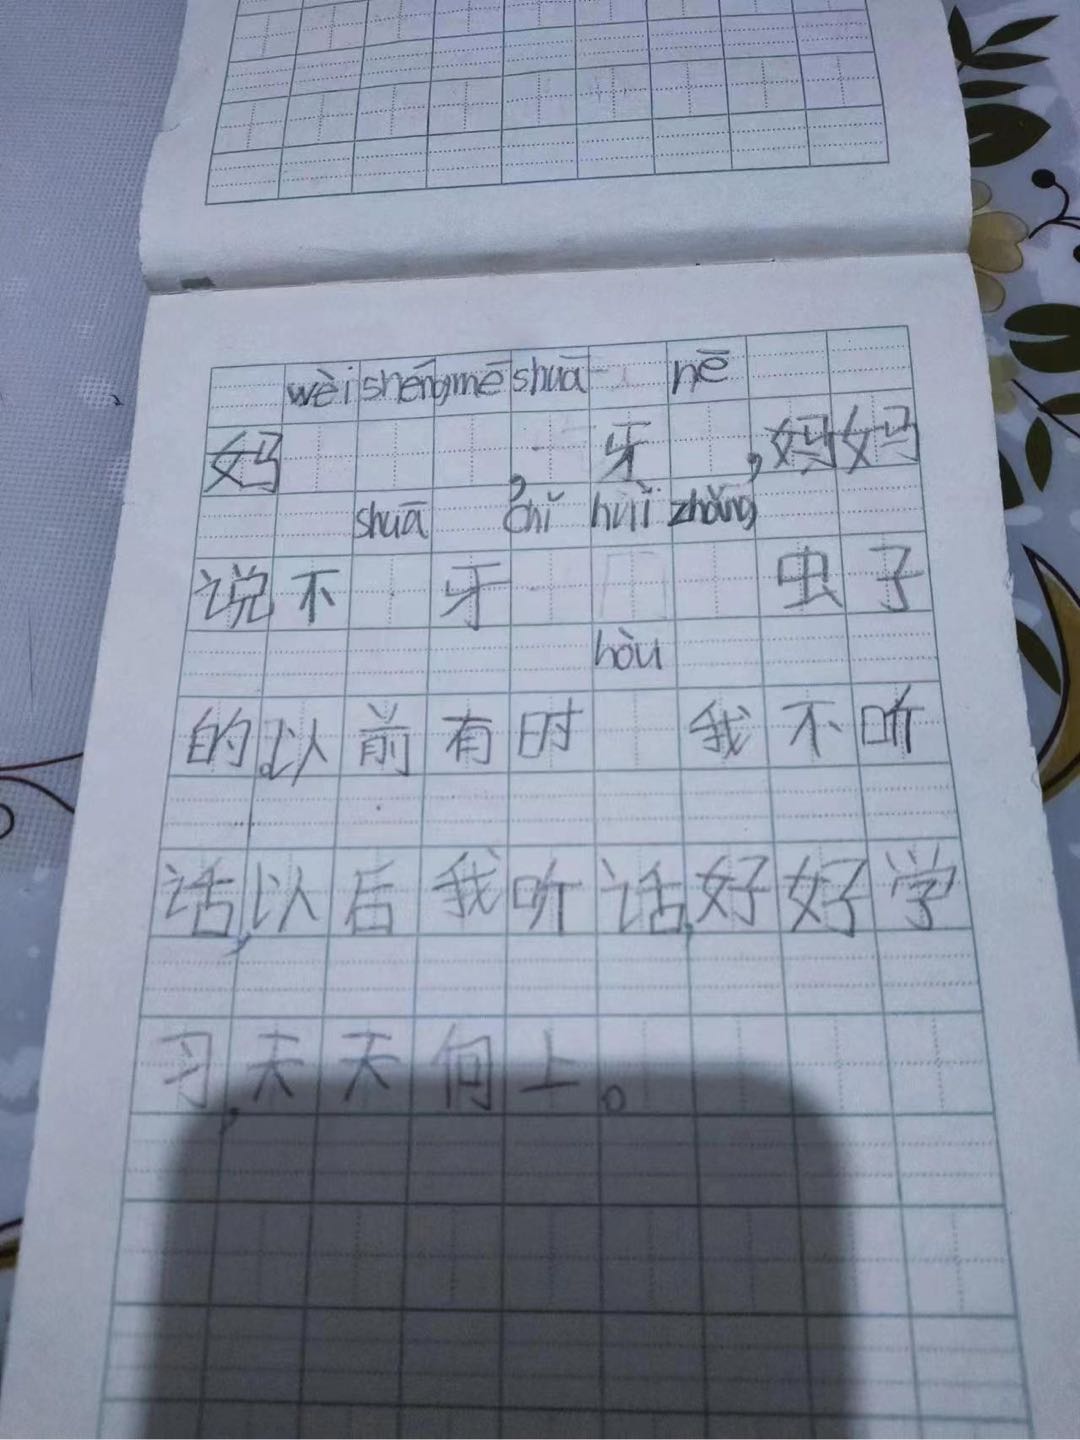 wèi shéngmē shuā nē
妈 , 牙 ,妈妈
shuā chǐ huìi zhǎng
说不 牙 虫子
hòu
的.以前有时 我不听
话,以后我听话,好好学
习,天天向上。